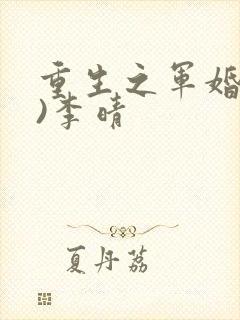 重生之军婚
)李晴
夏丹荔